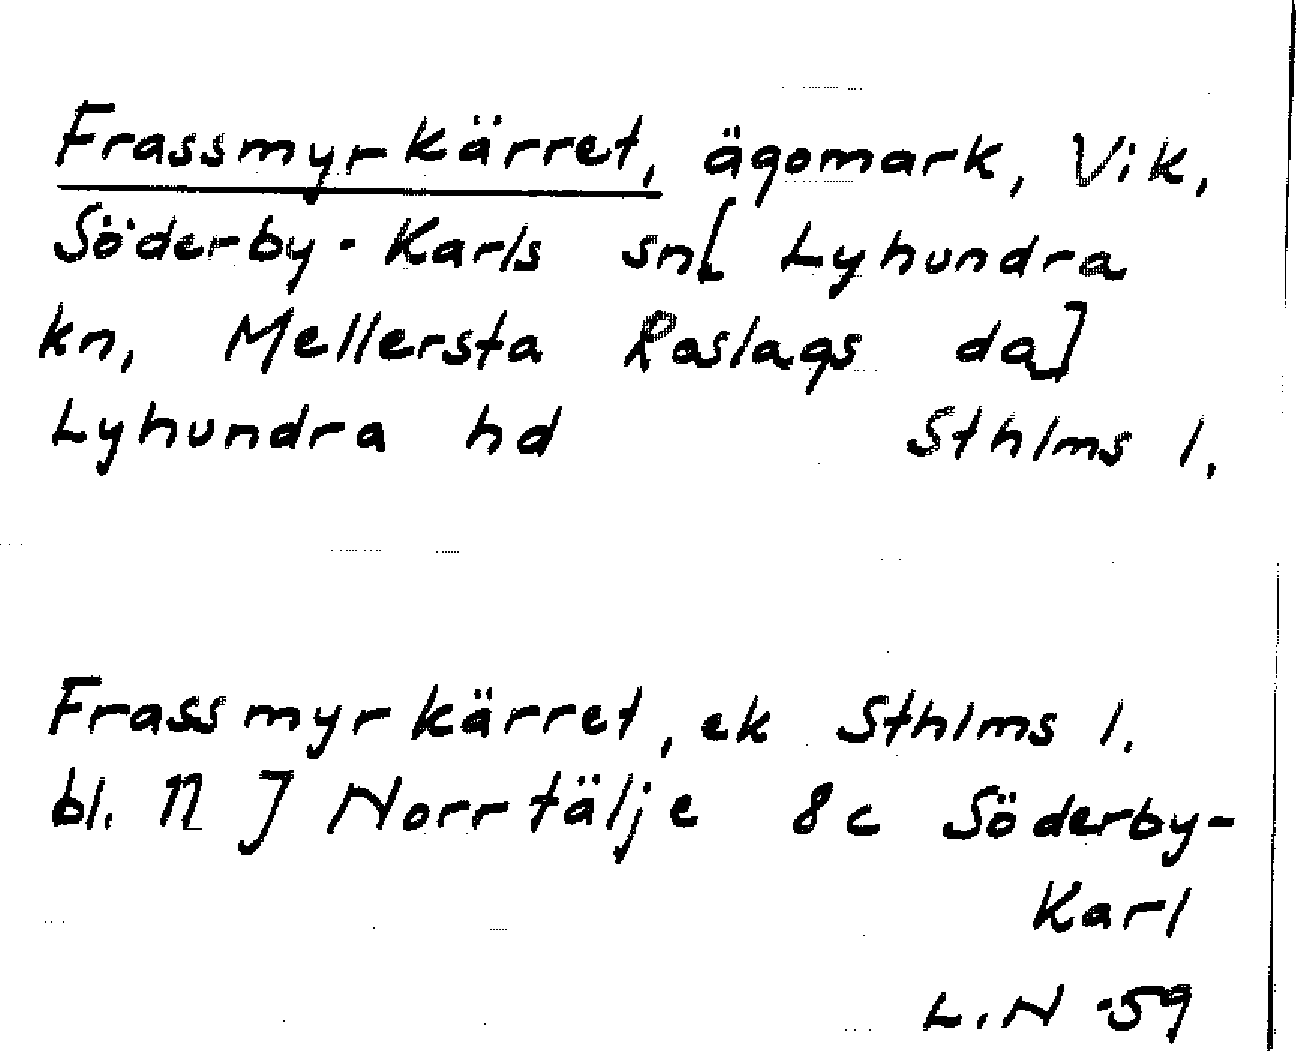 Frassmyrkärret, ägomark, Vik,
Söderby-Karls sn[ Lyhundra
kn, Mellersta Roslags da]
Lyhundra hd Sthlms l.
Frassmyrkärret, ek Sthlms l.
bl. 12 J Norrtälje 8c Söderby-
Karl
L.N -59